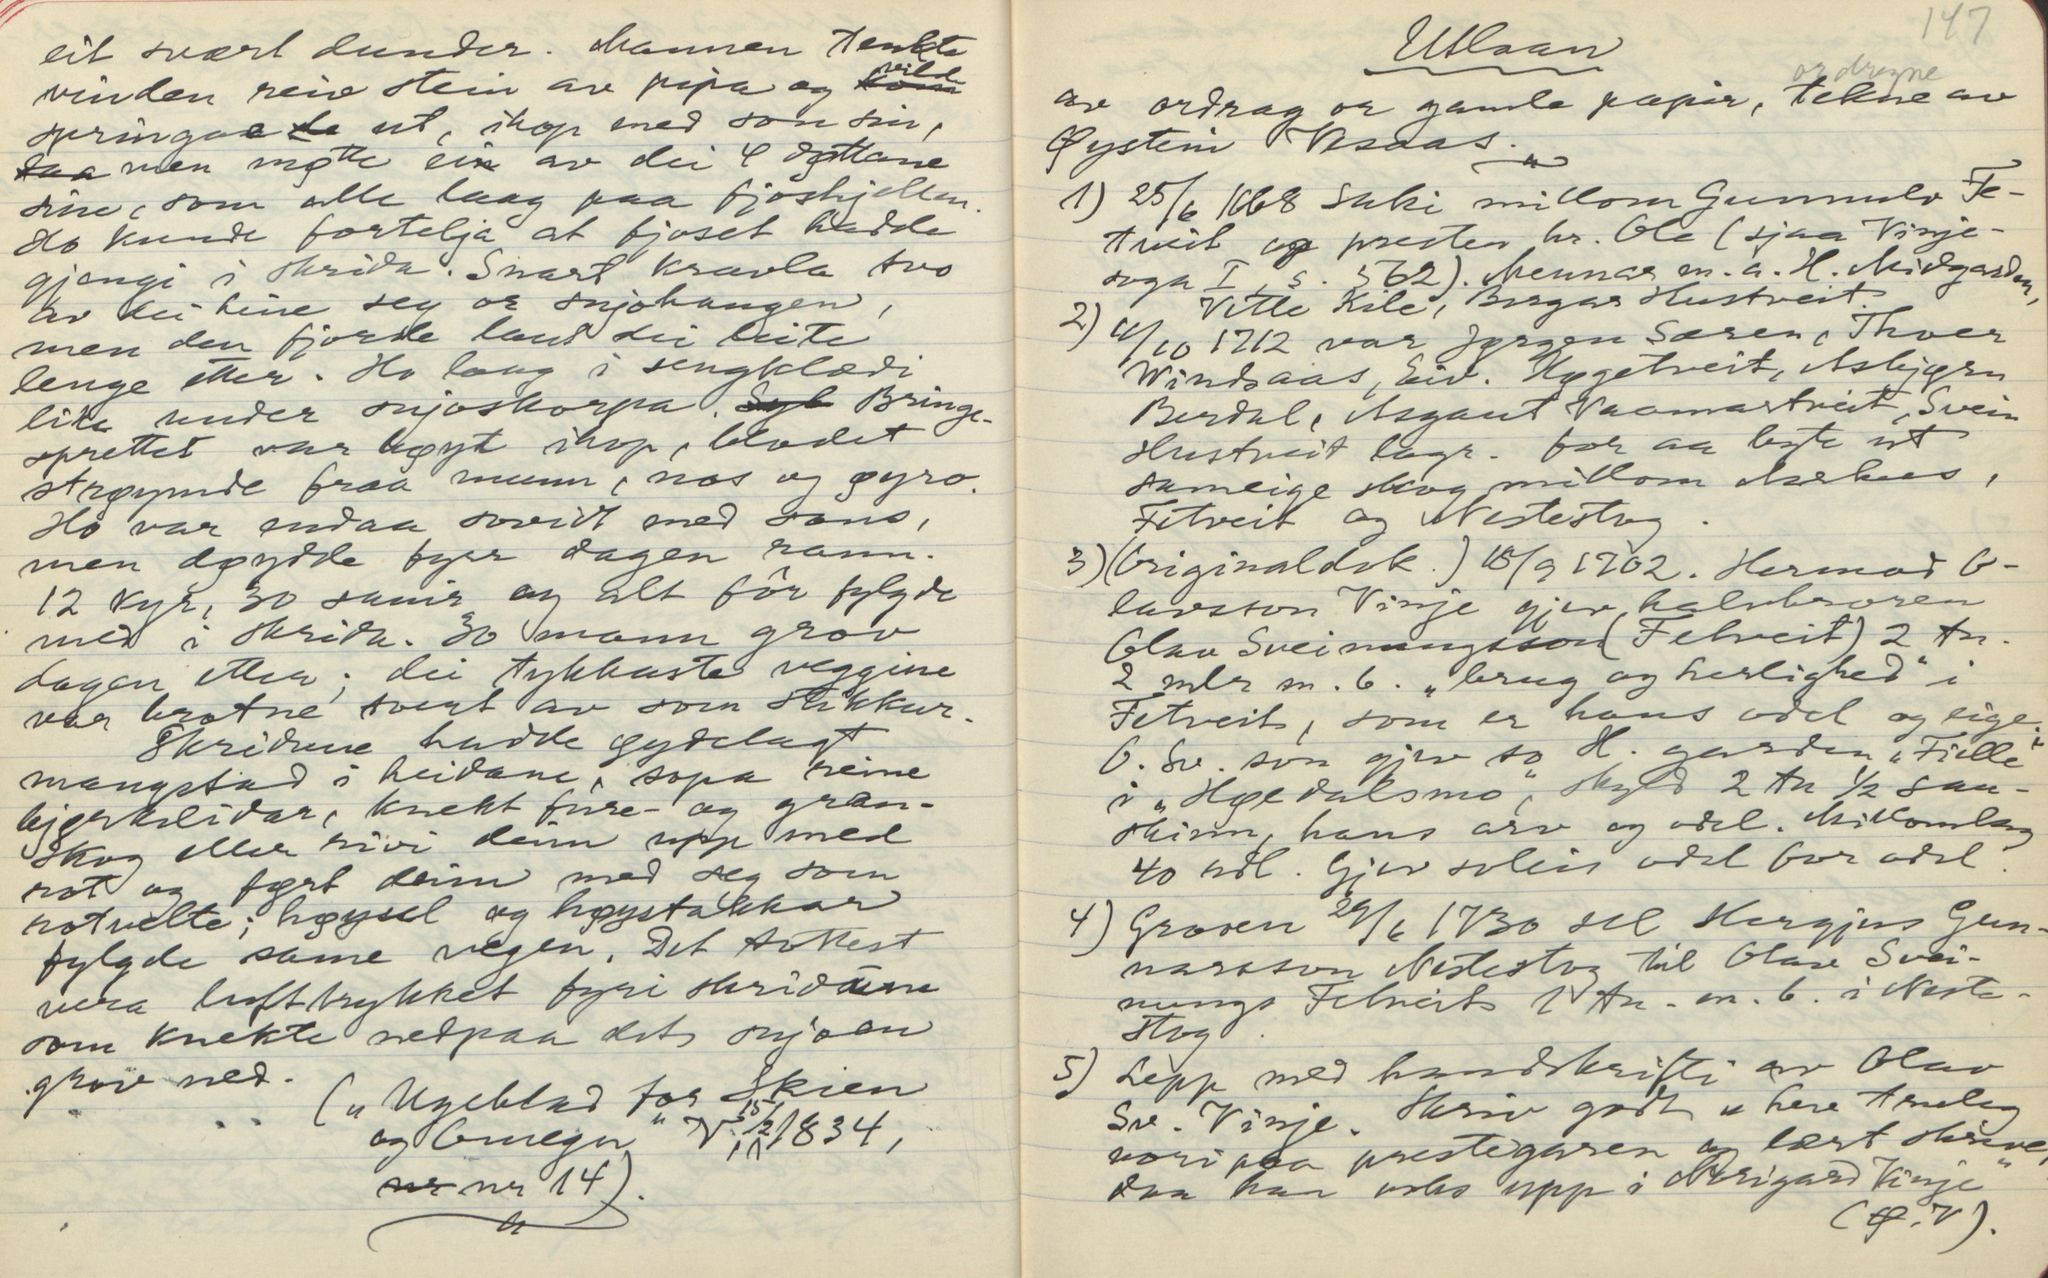 eit svært dunder. Mannen tenkte
vinden reiv stein av pipa og kom vilde
springae da ut, ihop med son sin,
daa men møtte ein av dei 4 døttane
sine, som alle laag paa fjoshjellen.
Ho kunde fortelja at fjoset hadde
gjengi i skrida. Snart kravla tvo
av dei hine seg or snjohaugen,
men den fjorde laut dei leite
lenge etter. Ho laag i sengklædi
lik under snjoskorpa. Bringe-
sprettet var bøygt ihop, blodet
strøymde fraa munn, nos og øyro.
Ho var endaa sovidt med sans,
men døydde fyrr dagen rann.
12 kyr, 30 sauir og alt fôr fylgde
med i skrida. 30 mann grov
dagen etter; dei tykkaste veggine
var brotne tvert av som stikkur.
Skridune hadde øydelagt
mangstad i heidane, sopa reine
bjørkelidar, knekt fure- og gran-
skog eller rivi deim upp med
rot og ført deim med seg som
rotvelte; høysel og høystakkar
fylgde same vegen. Det tottest
vera lufttrykket fyri skridune
som knekte nedpaa dei, snjoen
grov ned.
("Ugeblad for Skien
og Omegn" V. 15/2 1834,
nr nr 14).
147
Utlaan
ordregne
av ordrag or gamle papir, tekne av
Øystein Vesaas.
1) 25/6 1668 Saki millom Gunnulv Fe-
tveit og presten hr. Ole (sjaa Vinje-
soga I, s. 562). Mennar m.a. H. Midgarden,
Vetle Kile, Birgar Hustveit.
2) 4/10 1712 var Jørgen Særen, Thoer
Windsaas, Eiv. Høgetveit, Asbjørn
Berdal, Asgaut Vaamartveit, Svein
Hustveit lagr. for aa byte ut
sameige skog millom
Fetveit og Nestestog.
3) (Originaldok.) 18/9 1702. Hermod O-
lavsson Vinje gjev halvbroren
Olav Sveinungsson (Fetveit) 2 tn.
2 mlr m. b. "brug og herlighed" i
Fetveit, som er hans odel og eige.
O. Sv. son gjev so H. garden "Fielle"
i "Høedalsmo", skyld 2 tn ½ sau-
skinn, hans arv og odel. Millomlag
40 rdl. Gjev soleis odel for odel.
4) Groven 29/6 1730 sel Hergjus Gun-
narsson Nestestog til Olav Svei-
nungs Fetveit 1 tn. m. b. i Neste-
stog.
5) Lepp med handskrifti av Olav
Sv. Vinje. Skriv godt, "hev truleg
vori paa prestegaren og lært skrive,
daa han voks upp i Norigard Vinje"
(Ø. V).